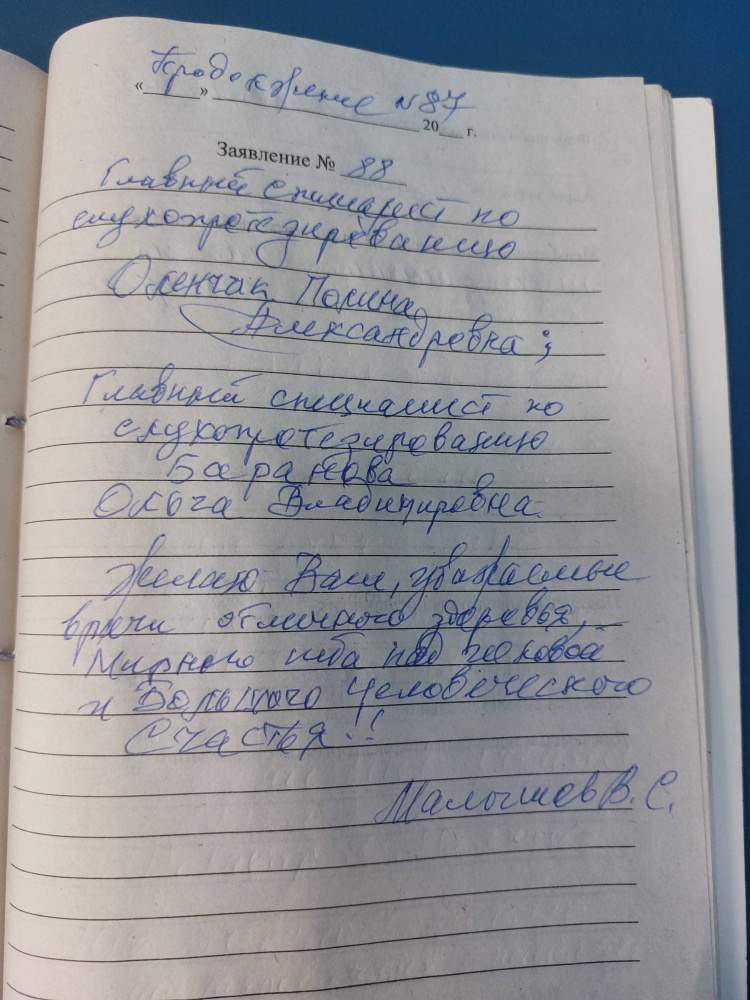 Продолжение №87
« » 20 г.
Заявление № 88
Главный специалист по
слухопротезированию
Оленчик Полина
Александровна;
Главный специалист по
слухопротезированию
Баранова
Ольга Владимировна.
Желаю Вам, уважаемые
врачи отличного здоровья,
Мирного неба над головой
и Большого Человеческого
Счастья!!
Малышев В. С.